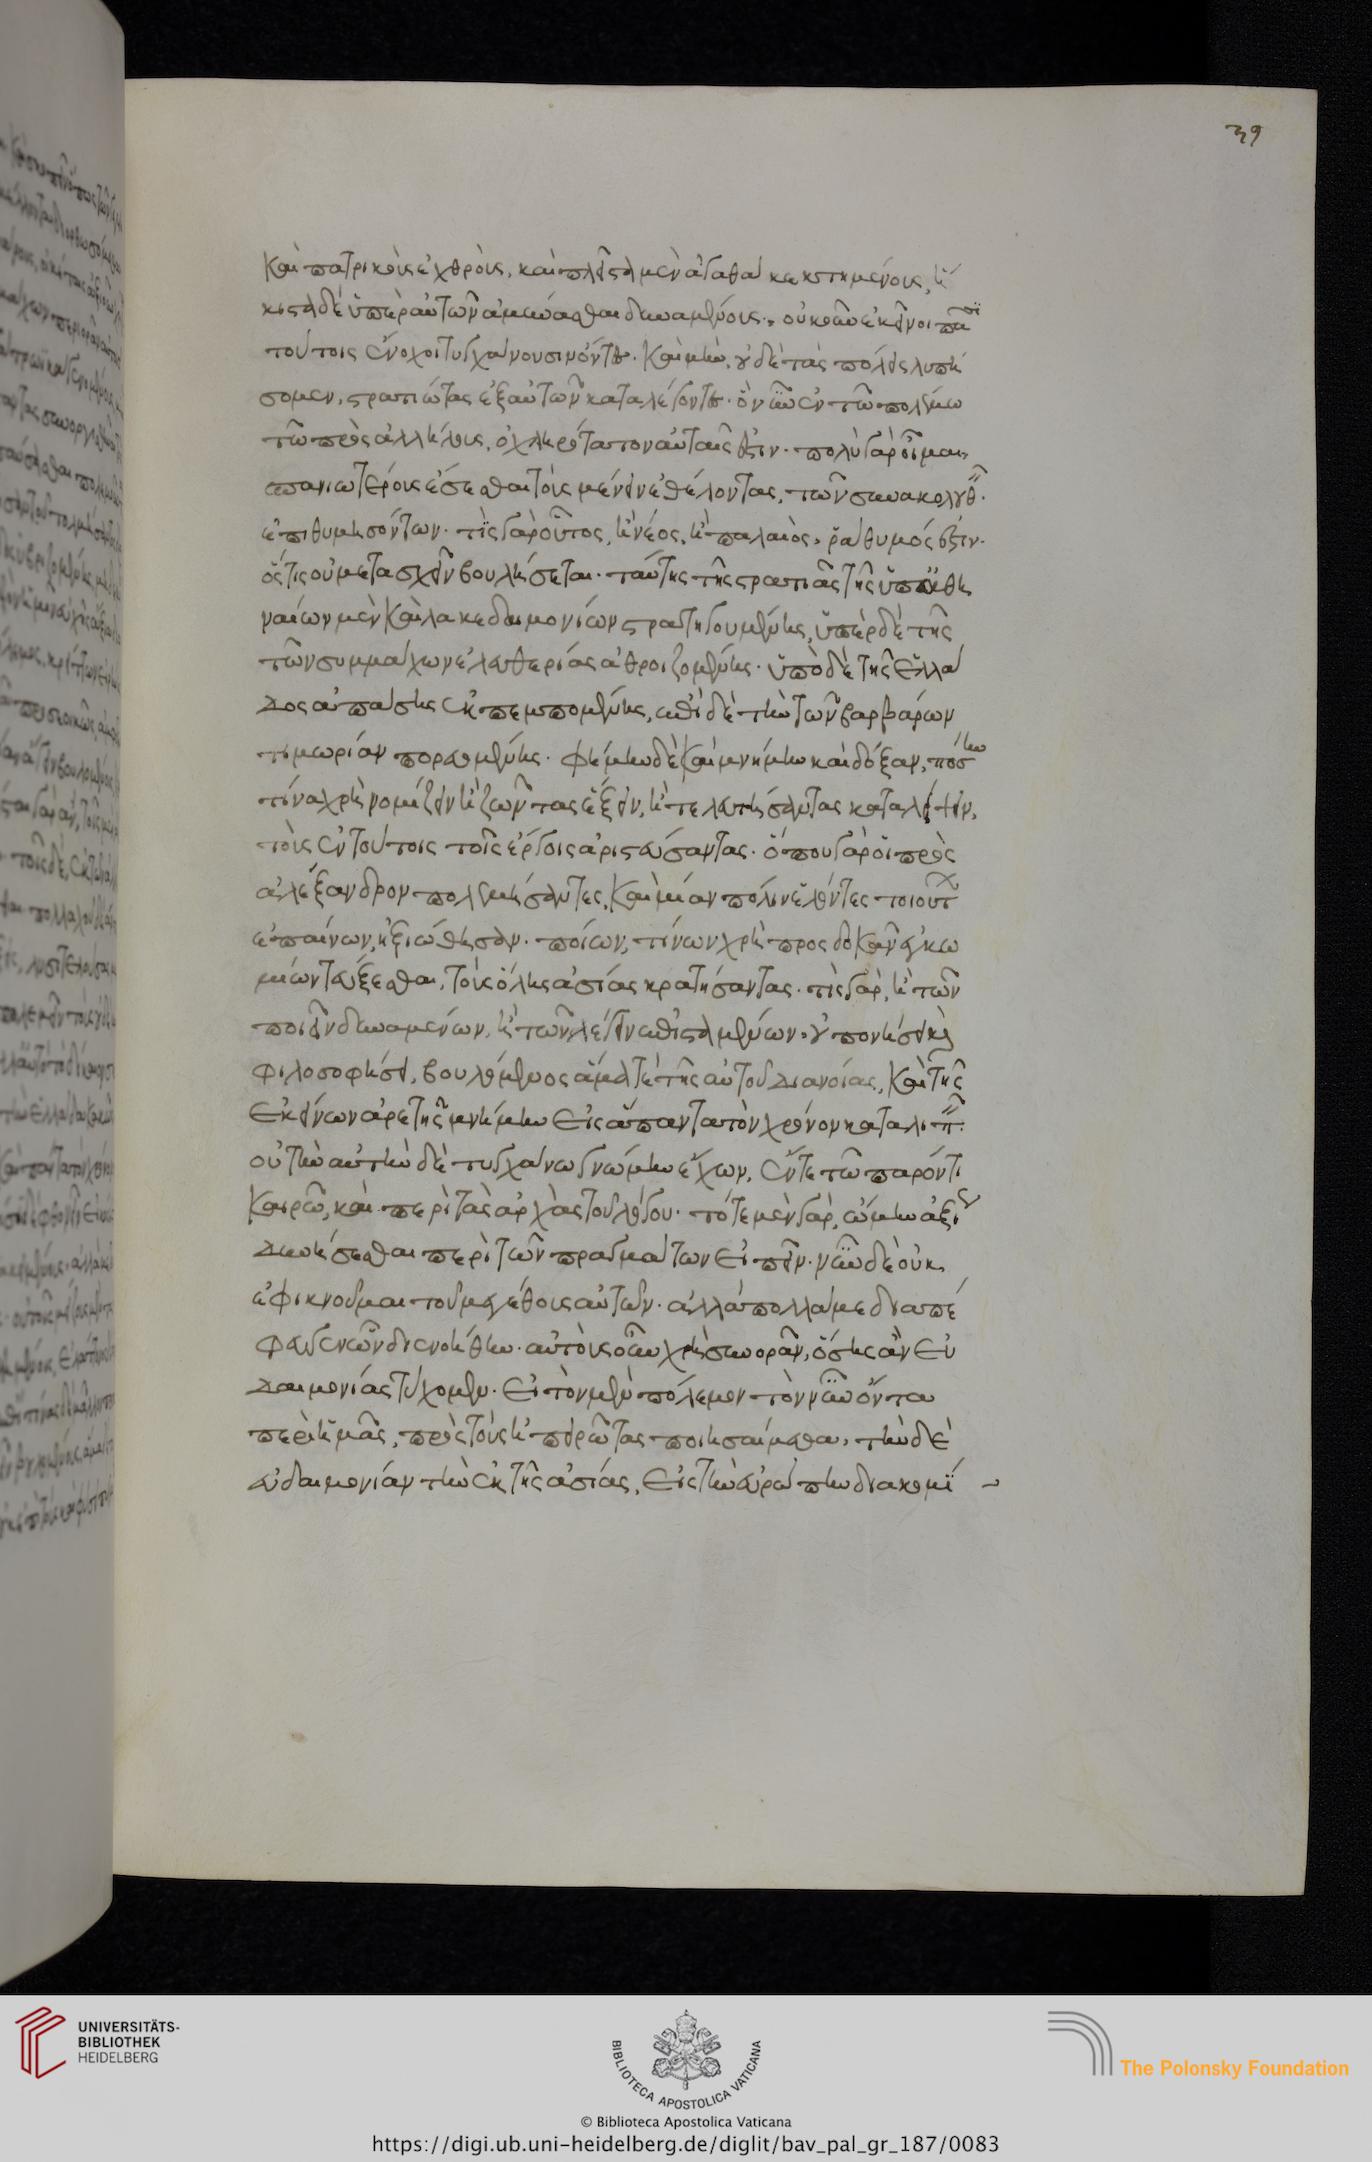 39
καὶ πατρικοὺς ἐχθροὺς, καὶ πλεῖστα μὲν ἀγαθὰ κεκτημένους, ἥ
κιστα δὲ ὑπὲρ αὐτῶν ἀμύνασθαι δυναμένους. οὐκοῦν ἐκεῖνοι πᾶσι
τούτοις ἔνοχοι τυγχάνουσιν ὄντες. καὶ μὴν, οὐδὲ τὰς πόλεις λυπή
σομεν, στρατιώτας ἐξ αὐτῶν καταλέγοντες. ὃ νῦν ἐν τῷ πολέμω
τῶ πρὸς ἀλλήλους, ὀχληρότατον αὐταῖς ἐστιν. πολὺ γὰρ οἶμαι,
σπανιωτέρους ἔσεσθαι τοὺς μένειν ἐθέλοντας, τῶν συνακολουθεῖν
ἐπιθυμησόντων. τίς γὰρ οὗτος, ἢ νέος, ἢ παλαιὸς, ῥάθυμός ἐστιν.
ὅστις οὐ μετασχεῖν βουλήσεται. ταύτης τῆς στρατιᾶς τῆς ὑπ' ἀθη
ναίων μὲν καὶ λακεδαιμονίων στρατηγουμένης, ὑπὲρ δὲ τῆς
τῶν συμμάχων ἐλευθερίας ἀθροιζομένης. ὑπὸ δὲ τῆς ἑλλά
δος ἁπάσης ἐκπεμπομένης, ἐπὶ δὲ τὴν τῶν βαρβάρων
τιμωρίαν πορευομένης. φήμην δὲ καὶ μνήμην καὶ δόξαν, πόσην
τινὰ χρὴ νομίζειν ἢ ζῶντας ἕξειν, ἢ τελευτήσαντας καταλείψειν,
τοὺς ἐν τούτοις τοῖς ἔργοις ἀριστεύσαντας. ὅπου γὰρ οἱ πρὸς
ἀλέξανδρον πολεμήσαντες, καὶ μίαν πόλιν ἑλόντες τοιούτων
ἐπαίνων, ἠξιώθησαν. ποίων, τινων χρὴ προσδοκᾶν ἐγκω
μίων τεύξεσθαι, τοὺς ὅλης ἀσίας κρατήσαντας. τίς γὰρ, ἢ τῶν
ποιεῖν δυναμένων, ἢ τῶν λέγειν ἐπισταμένων, οὐ πονήσει καὶ
φιλοσοφήσει, βουλόμενος ἅμα τέ τῆς αὑτοῦ διανοίας, καὶ τῆς
ἐκείνων ἀρετῆς μνήμην εἰς ἅπαντα τὸν χρόνον καταλιπεῖν.
οὐ τὴν αὐτὴν δὲ τυγχάνω γνώμην ἔχων, ἔν τε τῶ παρόντι
καιρῶ, καὶ περὶ τὰς ἀρχὰς τοῦ λόγου. τότε μὲν γὰρ, ὤμην ἀξίως
δυνήσεσθαι περὶ τῶν πραγμάτων εἰπεῖν. νῦν δὲ οὐκ
ἐφικνοῦμαι τοῦ μεγέθους αὐτῶν. ἀλλὰ πολλά με διαπέ
φευγεν ὧν διενοήθην. αὐτοὺς οὖν χρὴ συνορᾶν, ὅσης ἂν εὐ
δαιμονίας τύχοιμεν. εἰ τὸν μὲν πόλεμον τὸν νῦν ὄντα
περὶ ἡμᾶς, πρὸς τοὺς ἠπειρώτας ποιησαίμεθα, τὴν δὲ
εὐδαιμονίαν τὴν ἐκ τῆς ἀσίας, εἰς τὴν εὐρώπην διακομί
UNIVERSITÄTS-
BIBLIOTHEK
HEIDELBERG
BIBLIOTECA APOSTOLICA VATICANA
The Polonsky Foundation
© Biblioteca Apostolica Vaticana
https://digi.ub.uni-heidelberg.de/diglit/bav_pal_gr_187/0083